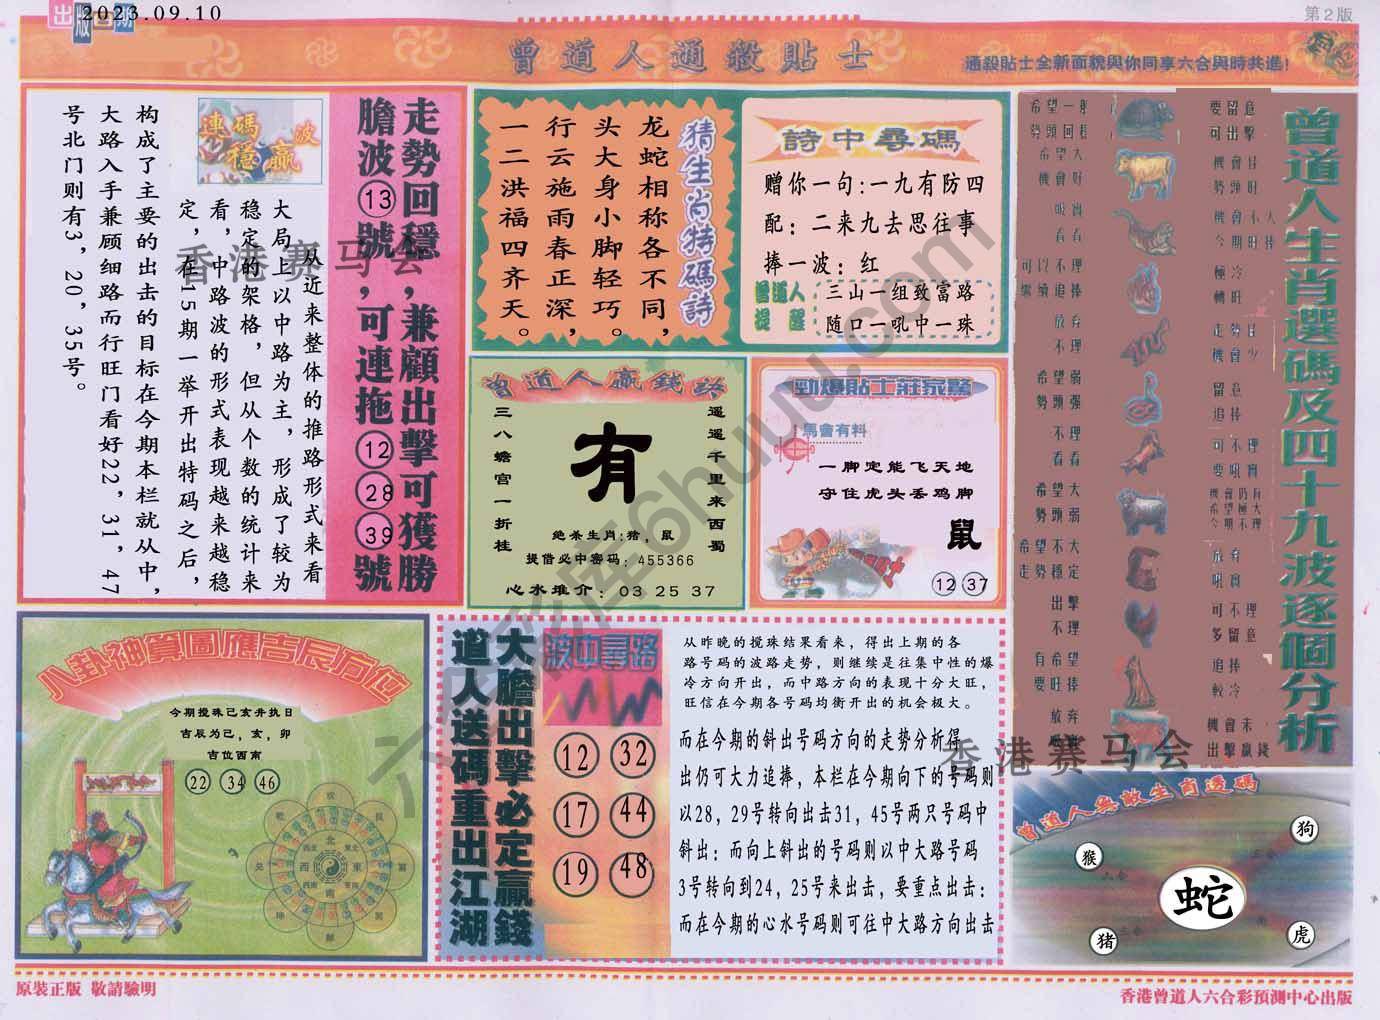 出版日期
2023.09.10
第2版
曾道人通殺貼士
通殺貼士全新面貌與你同享六合與時共進!
走勢回穩,兼顧出擊可獲勝
膽波⑬號,可連拖⑫㉘㊴號
連碼波
穩贏
从近来整体的推路形式来看
大局上以中路为主,形成了较为
稳定的架格,但从个数的统计来
看,中路波的形式表现越来越稳
定,在15期一举开出特码之后,
构成了主要的出击的目标在今期本栏就从中,
大路入手兼顾细路而行旺门看好22,31,47
号北门则有3,20,35号。
猜生肖特碼詩
龙蛇相称各不同,
头大身小脚轻巧。
行云施雨春正深,
一二洪福四齐天。
詩中尋碼
赠你一句:一九有防四
配:二来九去思往事
捧一波:红
曾道人
提醒
三山一组致富路
随口一吼中一珠
曾道人贏錢詩
遥遥千里来西蜀
三八蟾宫一折桂
有
绝杀生肖:猪,鼠
提借必中密码:455366
心水推介:03 25 37
勁爆貼士莊家驚
馬會有料
一脚定能飞天地
守住虎头丢鸡脚
鼠
12 37
曾道人生肖選碼及四十九波逐個分析
希望一般
勢頭回穩
要留意
可出擊
希望大
機會好
機會佳
勢頭旺
吸實
看看
機會不大
今期旺捧
可以不理
繼續追捧
極冷
轉旺
放弃
不理
走勢日
機會少
希望弱
勢頭强
留意
追捧
不理
看看
可不理
要吼實
希望大
勢頭弱
機會仍有
希望極大
今期不理
希望不大
走勢穩定
放弃
吼實
出擊
不理
可不理
多留意
有希望
要旺捧
追捧
較冷
放弃
機會未
出擊贏錢
八卦神算圖應吉辰方位
今期搅珠己亥并执日
吉辰为己,亥,卯
吉位西南
22 34 46
北
東
南
西
大膽出擊必定贏錢
道人送碼重出江湖
波中尋路
12 32
17 44
19 48
从昨晚的搅珠结果看来,得出上期的各
路号码的波路走势,则继续是往集中性的爆
冷方向开出,而中路方向的表现十分大旺,
旺信在今期各号码均衡开出的机会极大。
而在今期的斜出号码方向的走势分析得
出仍可大力追捧,本栏在今期向下的号码则
以28,29号转向出击31,45号两只号码中
斜出:而向上斜出的号码则以中大路号码
3号转向到24,25号来出击,要重点出击:
而在今期的心水号码则可往中大路方向出击
曾道人無敵生肖透碼
猴
狗
蛇
猪
虎
原裝正版 敬請驗明
香港曾道人六合彩預測中心出版
香港赛马会
香港赛马会
六合彩库6huuu.com